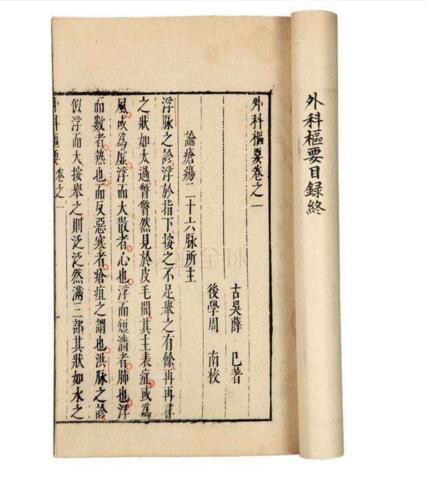 外科樞要目錄終
外科樞要卷之一
古吳薛 已著
後學周 南校
論瘡瘍二十六脉所主
浮脉之診浮於指下按之不足舉之有餘再再尋
之狀如太過瞥瞥然見於皮毛間其主表症或為
風或為虛浮而大散者心也浮而短濇者肺也浮
而數者熱也而反惡寒者瘡疽之謂也洪脉之診
似浮而大按舉之則泛泛然滿三部其狀如水之
外科樞要卷之一